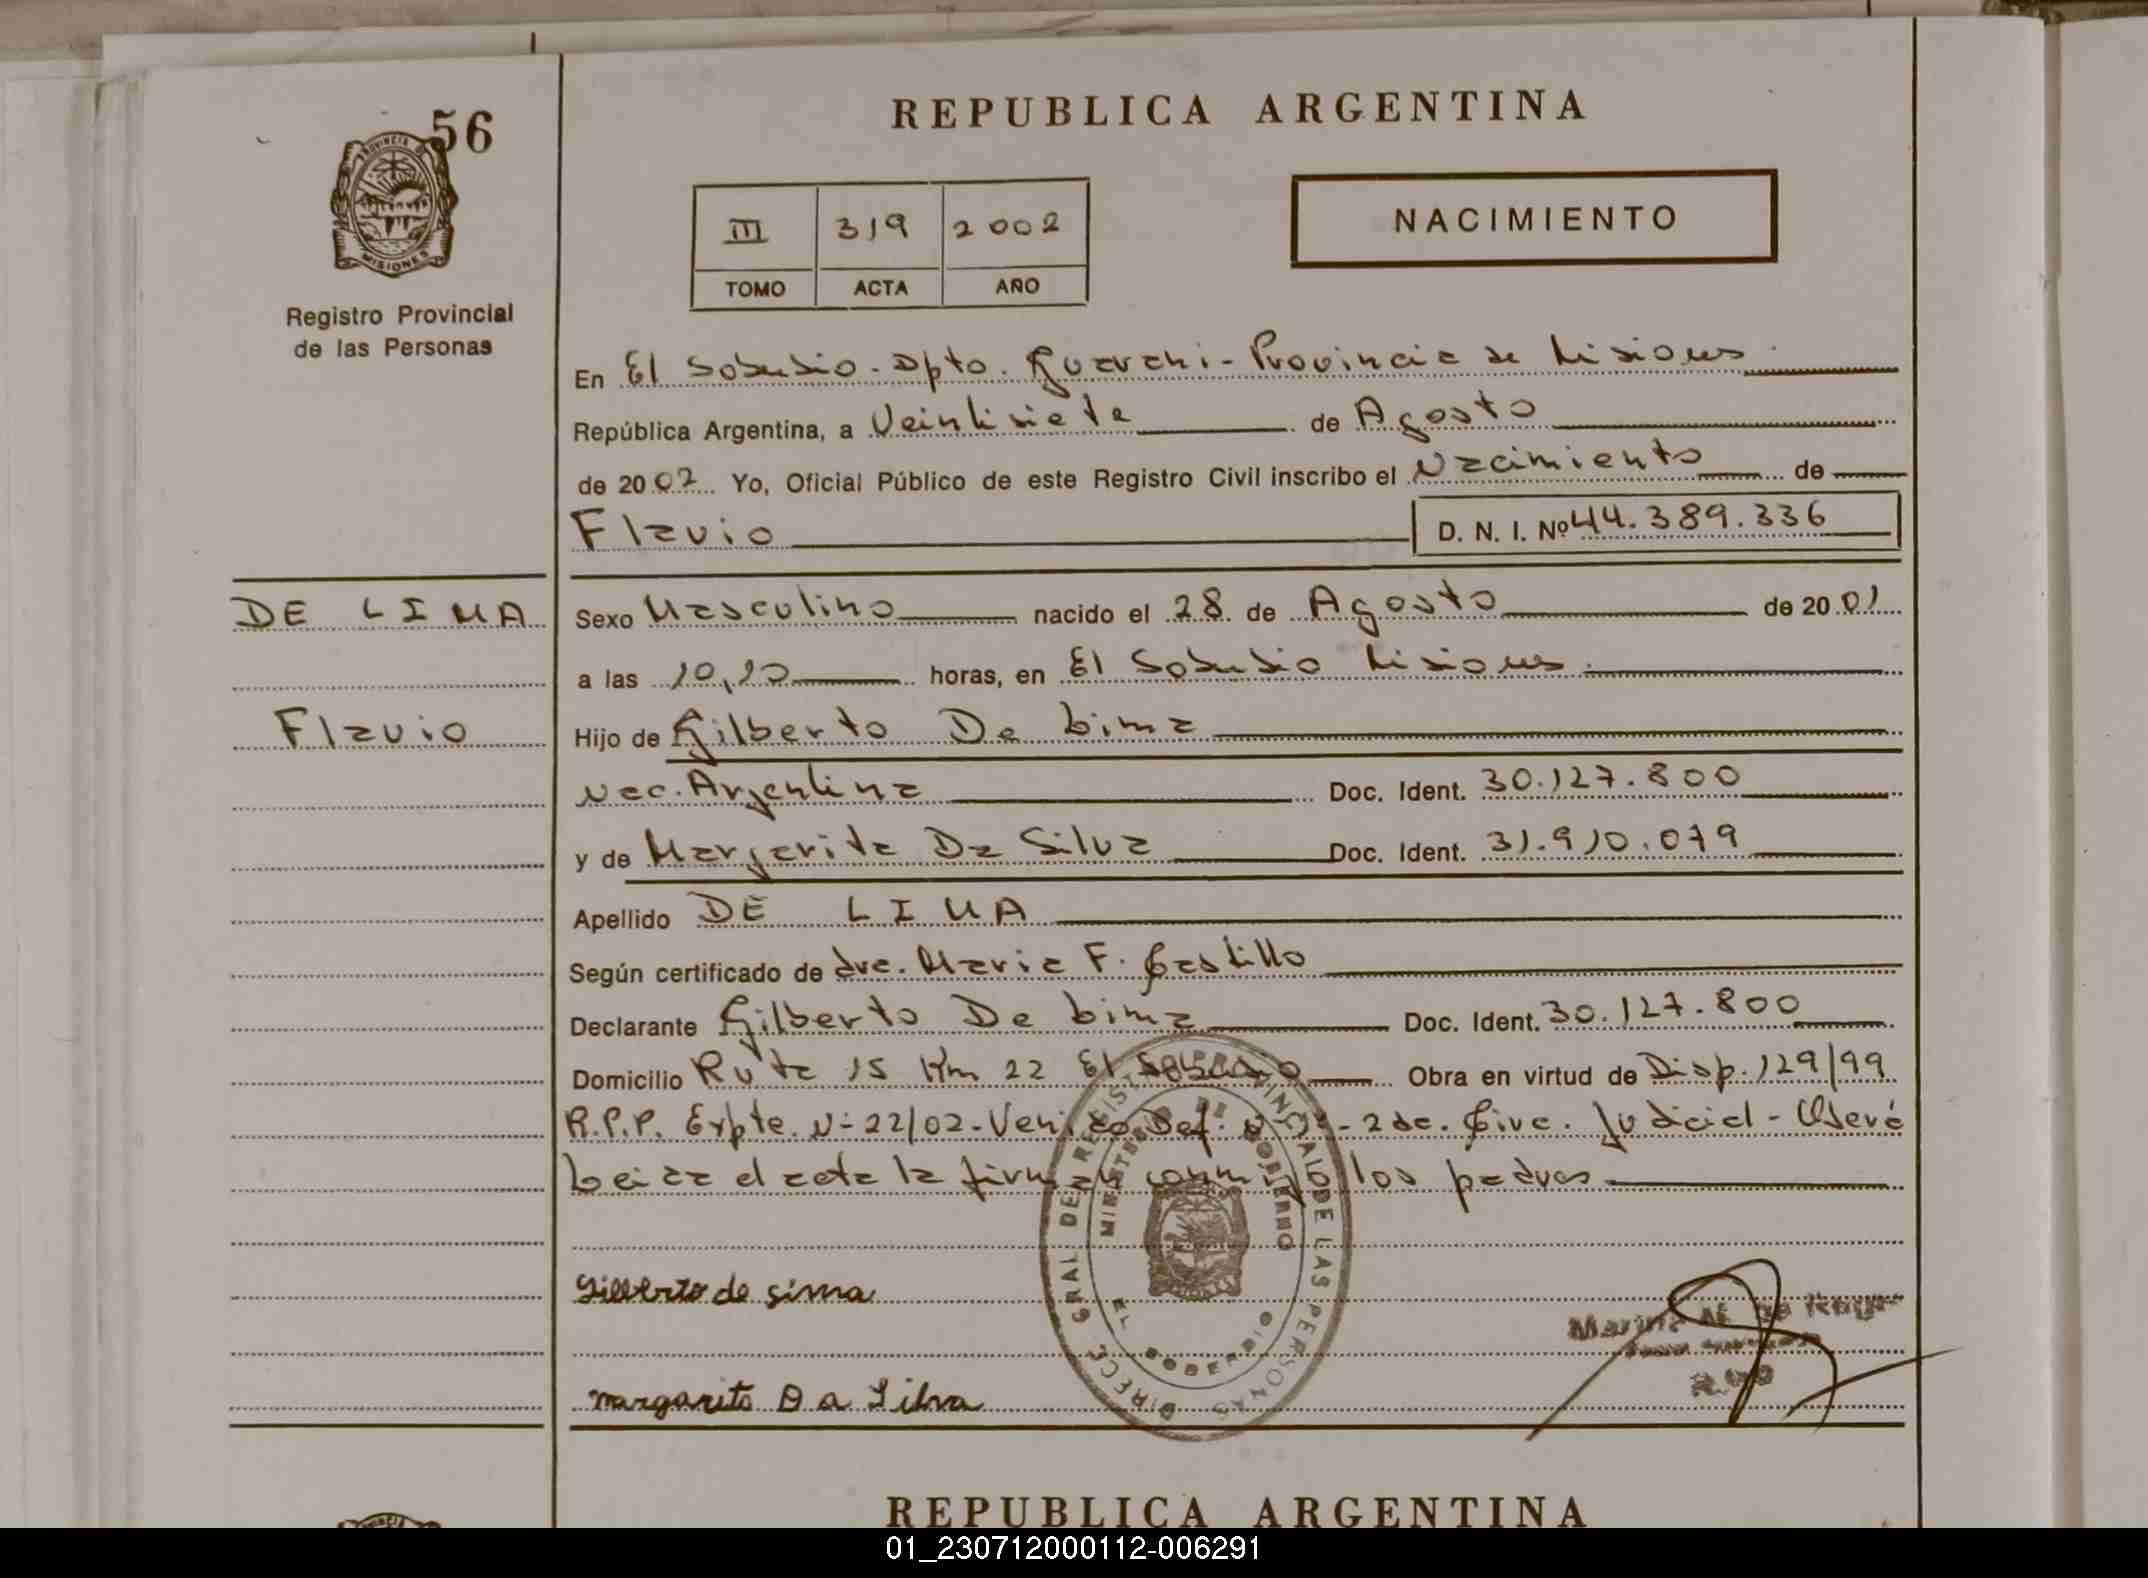 56
PROVINCIA DE
MISIONES
Registro Provincial
de las Personas
REPUBLICA ARGENTINA
III 319 2002
TOMO ACTA AÑO
NACIMIENTO
En El Soberbio - Dpto. Guaraní - Provincia de Misiones
República Argentina, a Veintisiete de Agosto
de 2002 Yo, Oficial Público de este Registro Civil inscribo el Nacimiento de
Flavio D. N. I. Nº 44.389.336
DE LIMA
Flavio
Sexo Masculino nacido el 28 de Agosto de 2001
a las 10,10 horas, en El Soberbio Misiones.
Hijo de Gilberto De Lima
Nac. Argentina Doc. Ident. 30.127.800
y de Margarita Da Silva Doc. Ident. 31.910.079
Apellido DE LIMA
Según certificado de dra. Maria F. Castillo
Declarante Gilberto De Lima Doc. Ident. 30.127.800
Domicilio Ruta 15 Km 22 El Soberbio Obra en virtud de Disp. 129/99
R.P.P. Expte. N- 22/02 - Def. - 2da. Circ. Judicial - Oberá
Leida el acta la firman los padres
Gilberto de Lima
Margarita Da Silva
DIRECC. GRAL DE REGISTRO PROVINCIAL DE LAS PERSONAS
MINISTERIO DE GOBIERNO
EL SOBERBIO
REPUBLICA ARGENTINA
01_230712000112-006291